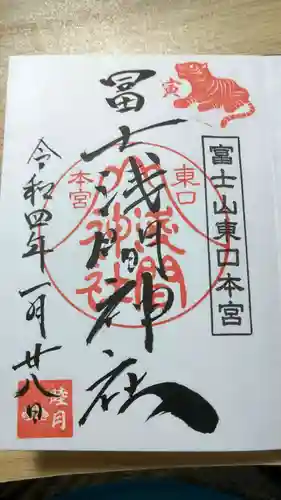 寅
冨士山東口本宮
東口
本宮
冨士浅間神社
浅間
神社
令和四年一月廿八日
睦月